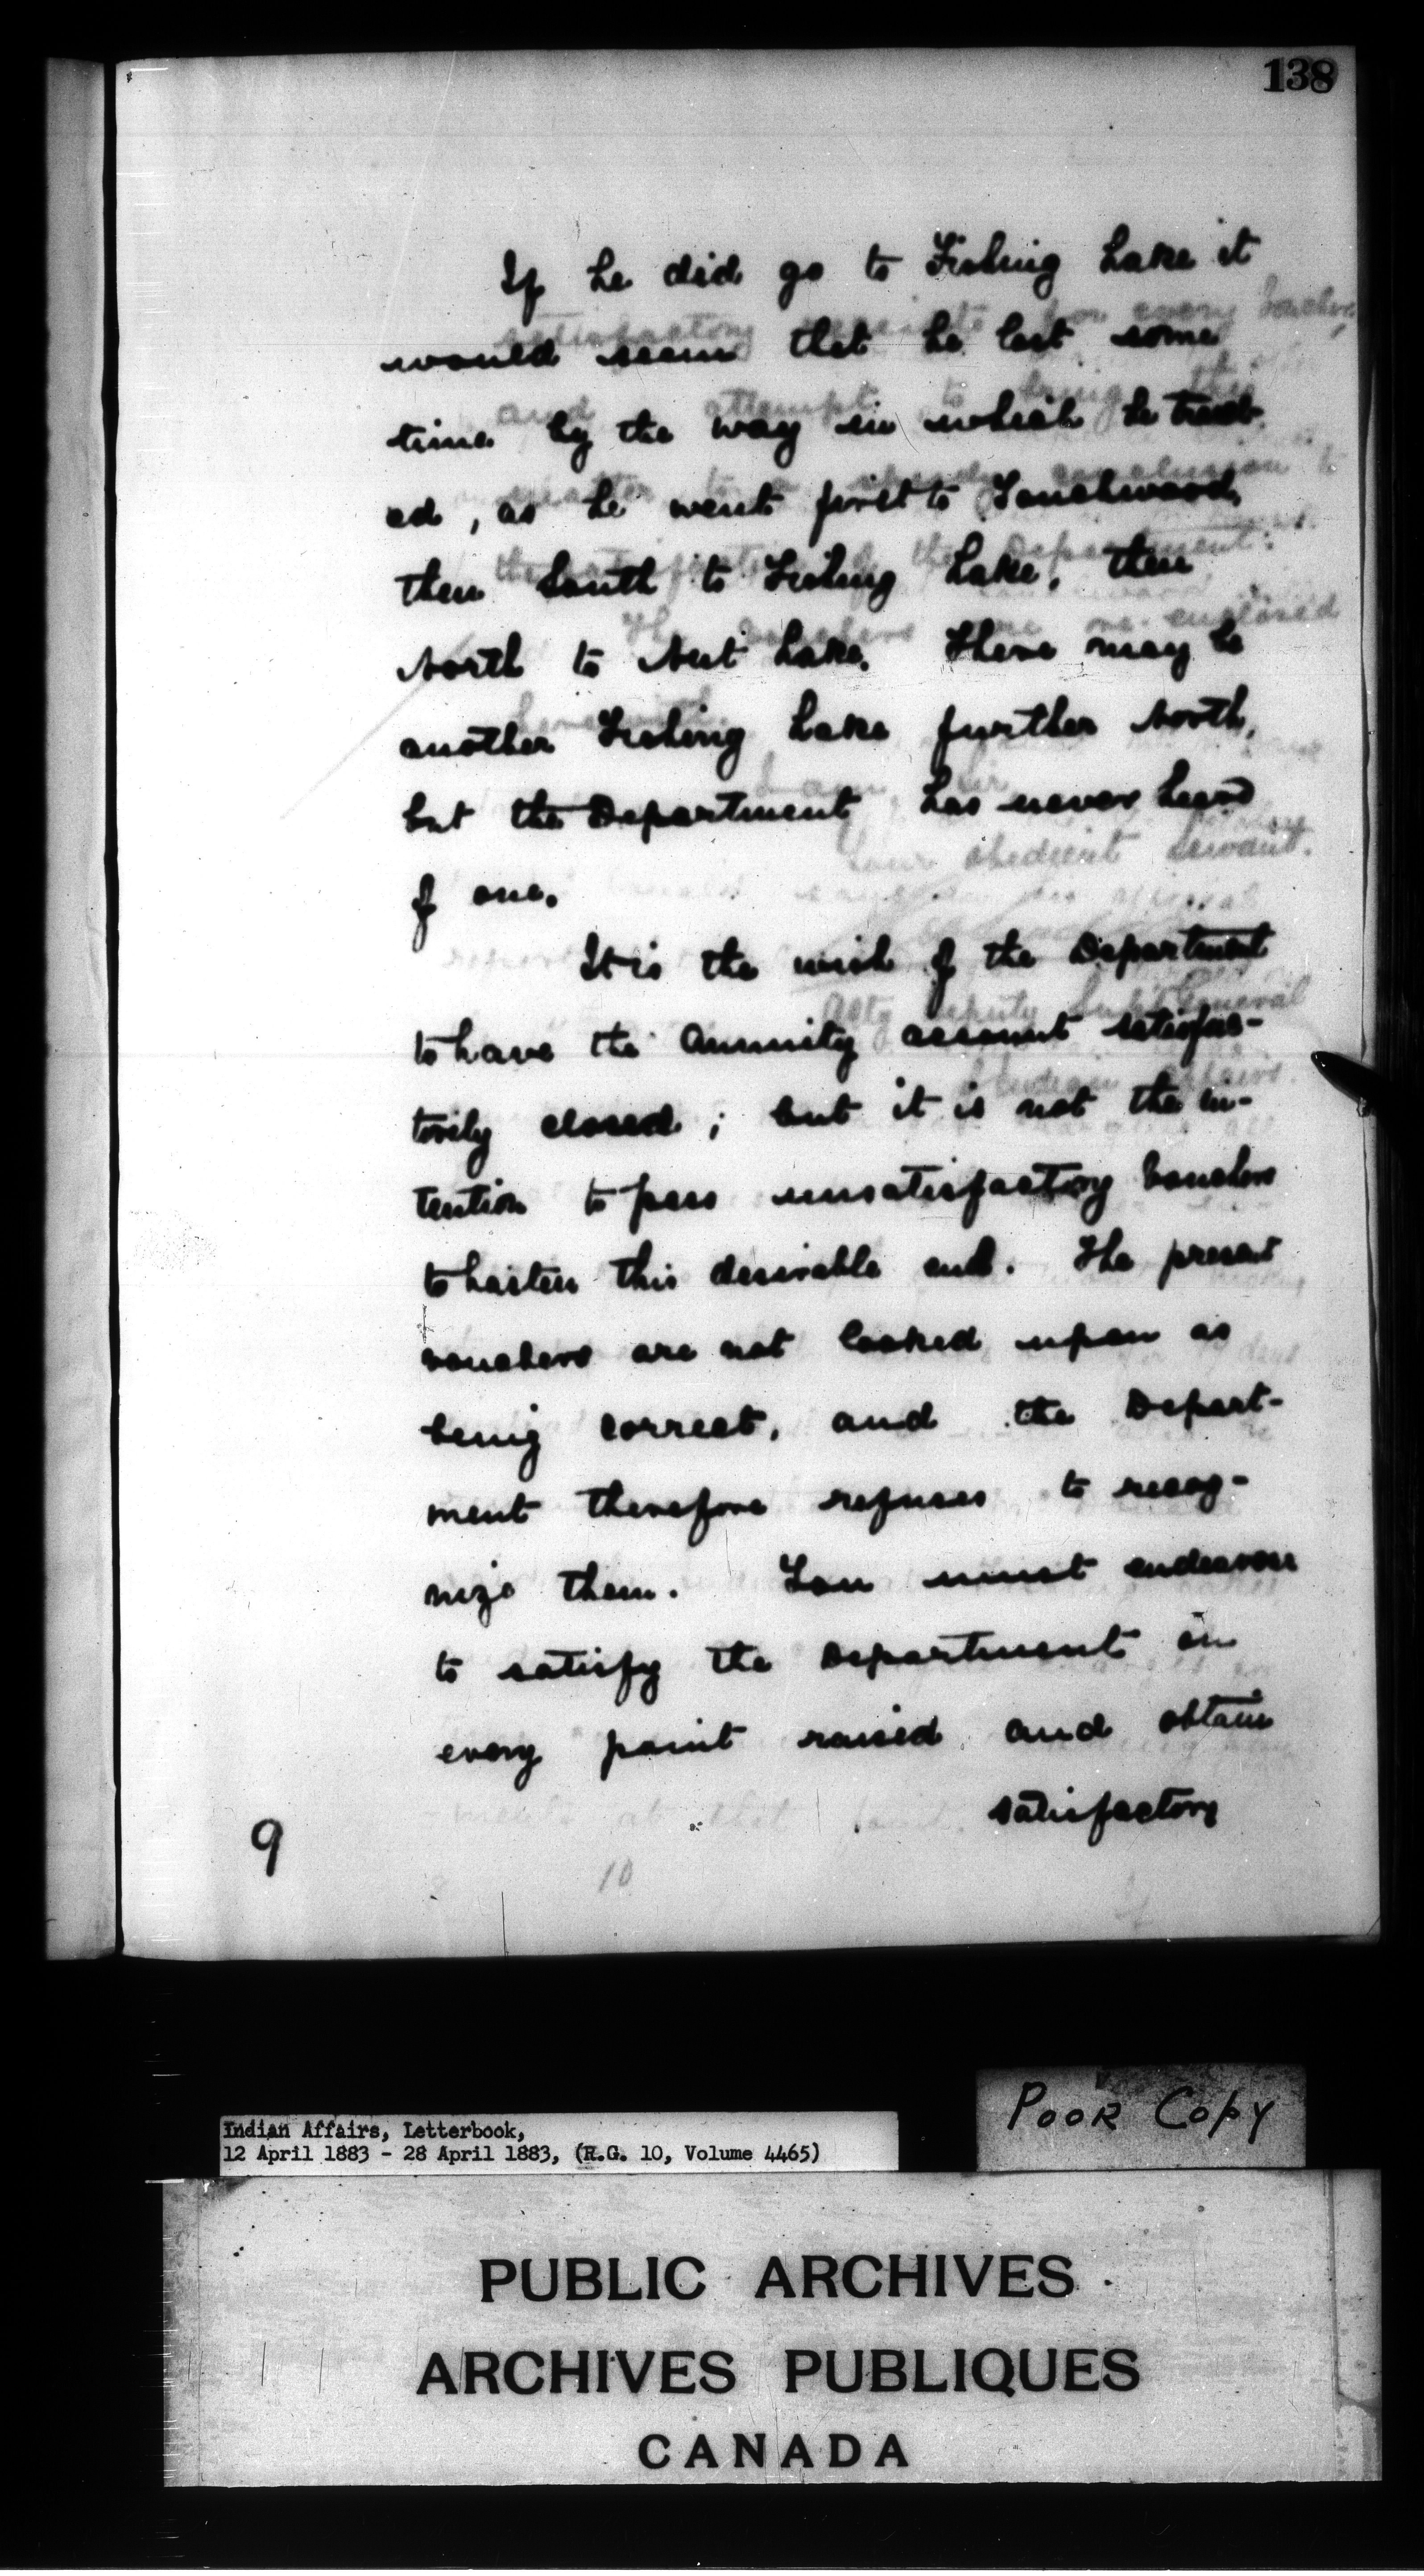 138
If he did go to Fishing Lake it
would seem that he lost some
time by the way in which he travel-
ed, as he went first to Touchwood,
then South to Fishing Lake, then
North to Nut Lake. There may be
another Fishing Lake further North,
but the Department has never heard
of one.
It is the wish of the Department
to have the Annuity account satisfac-
torily closed; but it is not the in-
tention to pass unsatisfactory Vouchers
to hasten this desirable end. The present
vouchers are not looked upon as
being correct, and the Depart-
ment therefore refuses to recog-
nize them. You must endeavour
to satisfy the Department on
every point raised and obtain
satisfactory
9
10
Poor Copy
Indian Affairs, Letterbook,
12 April 1883 - 28 April 1883, (R.G. 10, Volume 4465)
PUBLIC ARCHIVES
ARCHIVES PUBLIQUES
CANADA